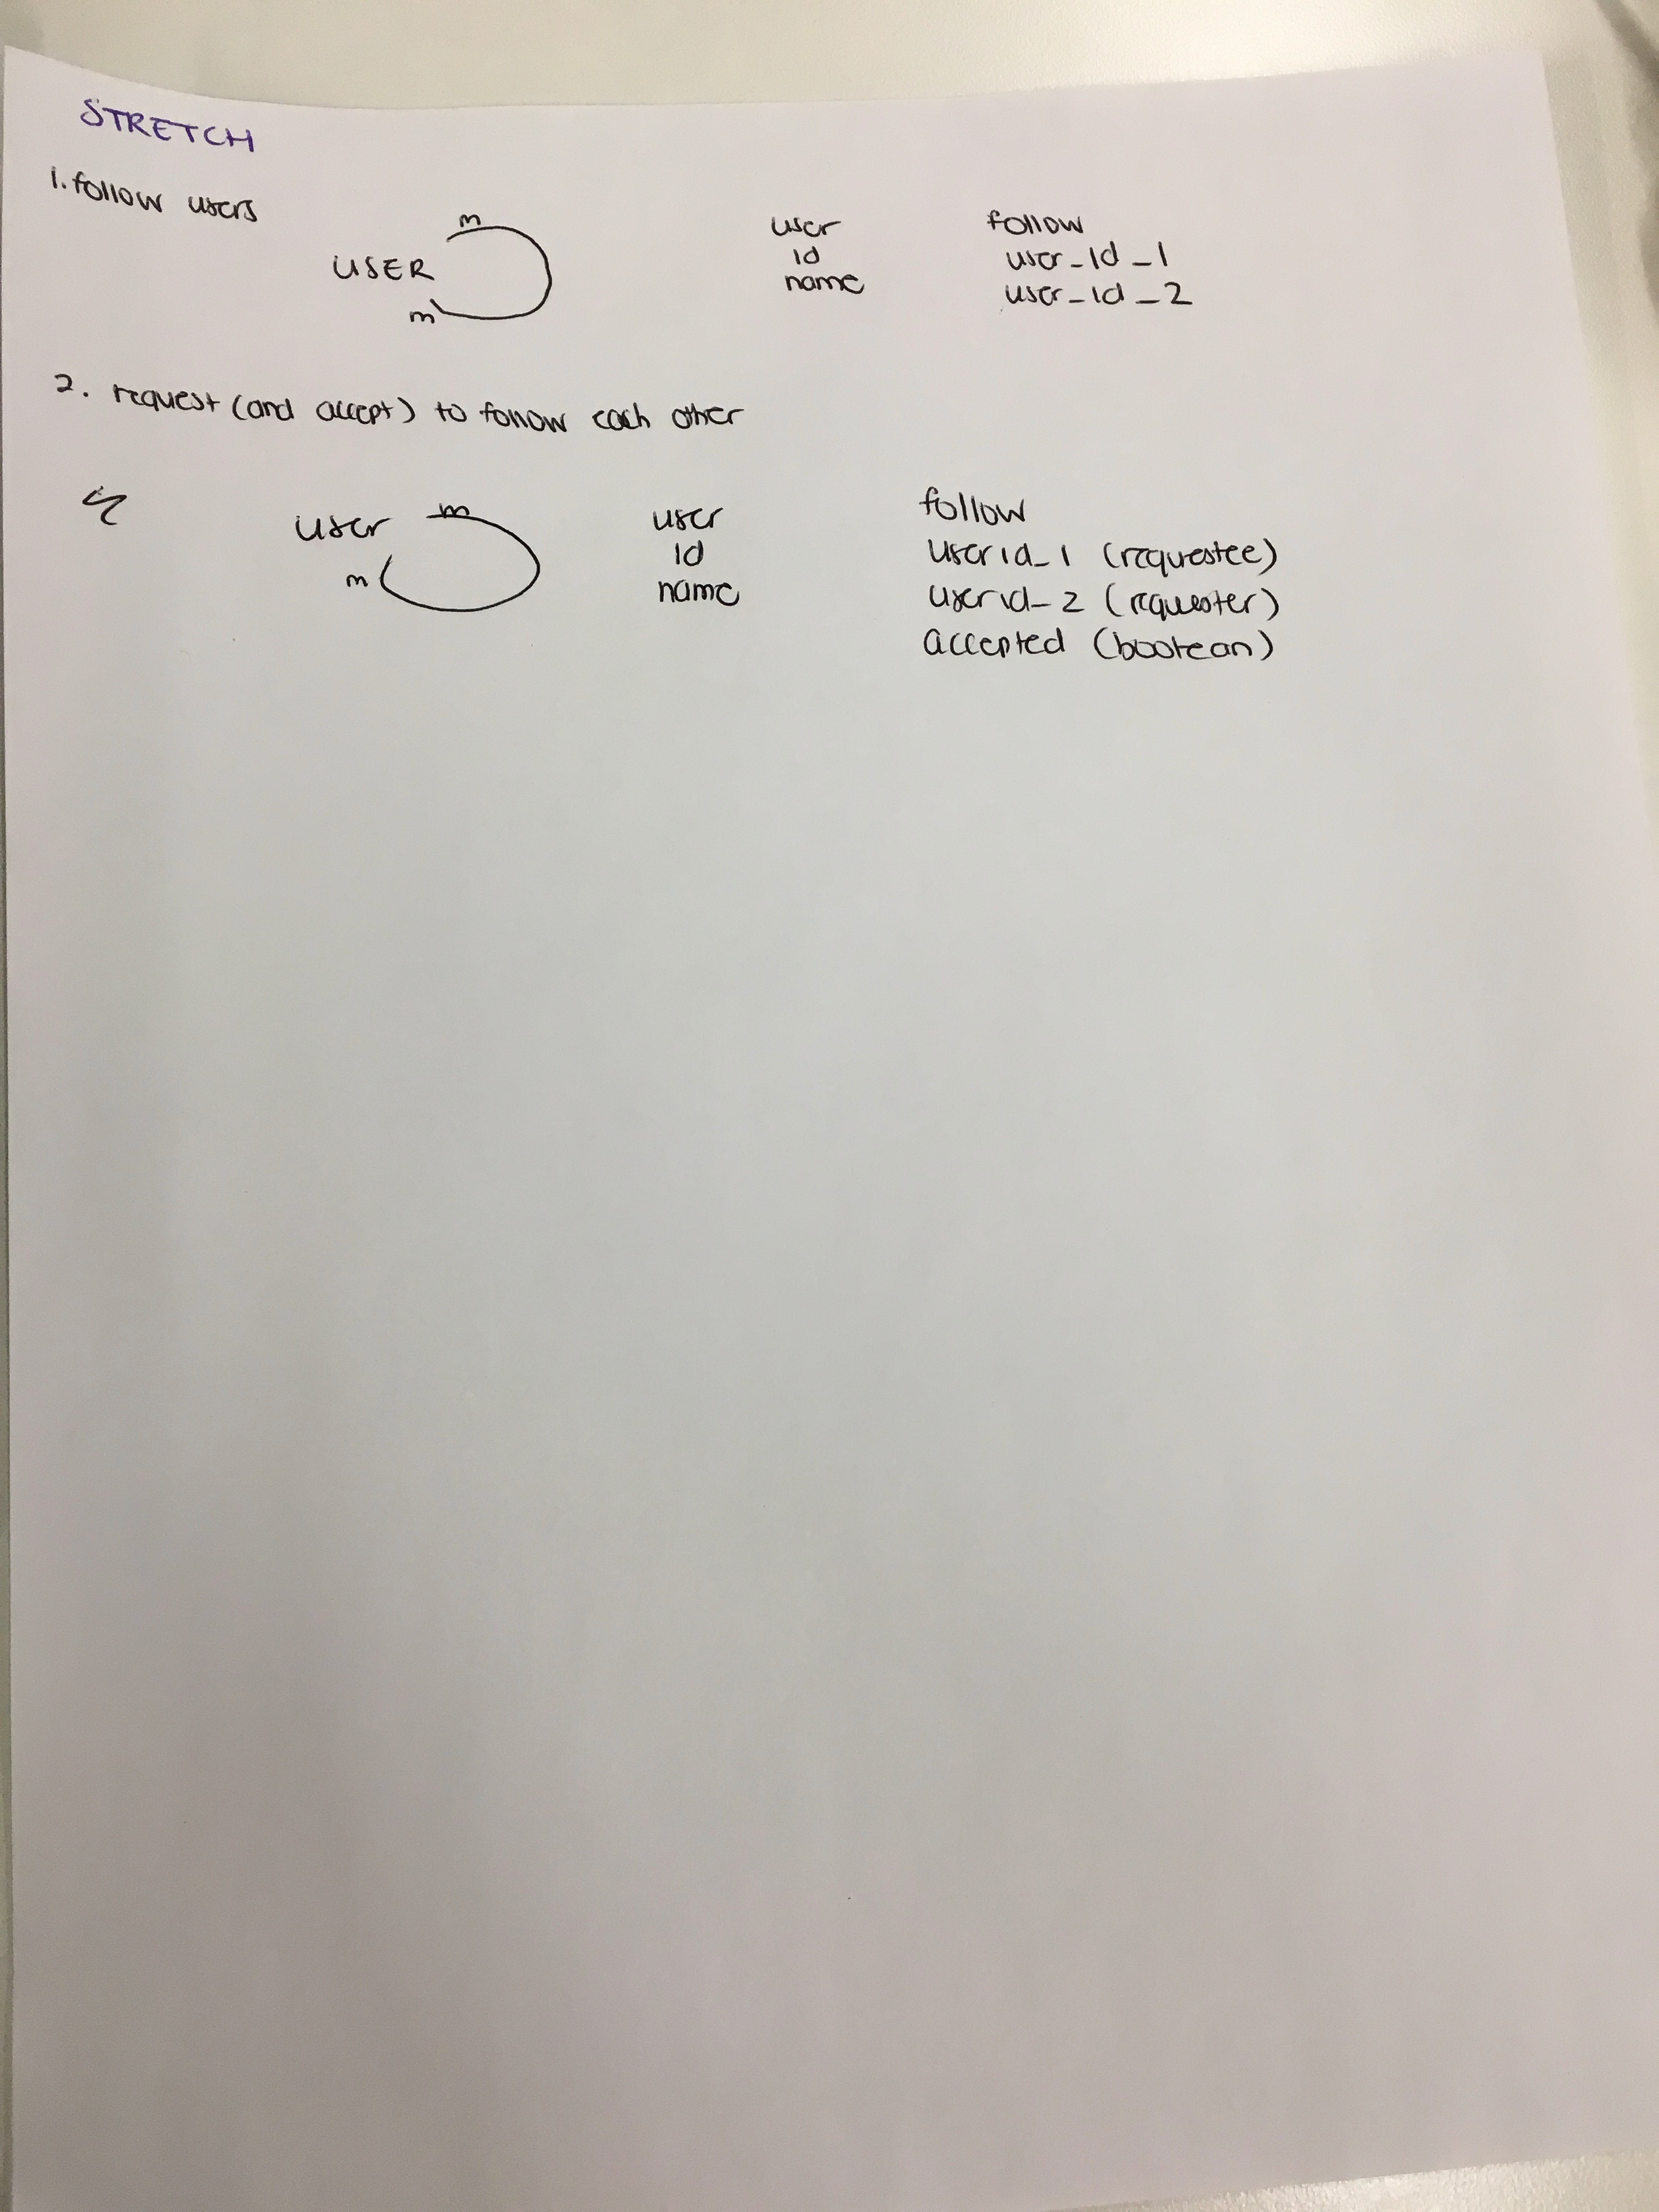 STRETCH
1. follow users
m
USER
m
user
id
name
follow
user_id_1
user_id_2
2. request (and accept) to follow each other
user
m
m
user
id
name
follow
userid_1 (requestee)
userid_2 (requester)
accepted (boolean)